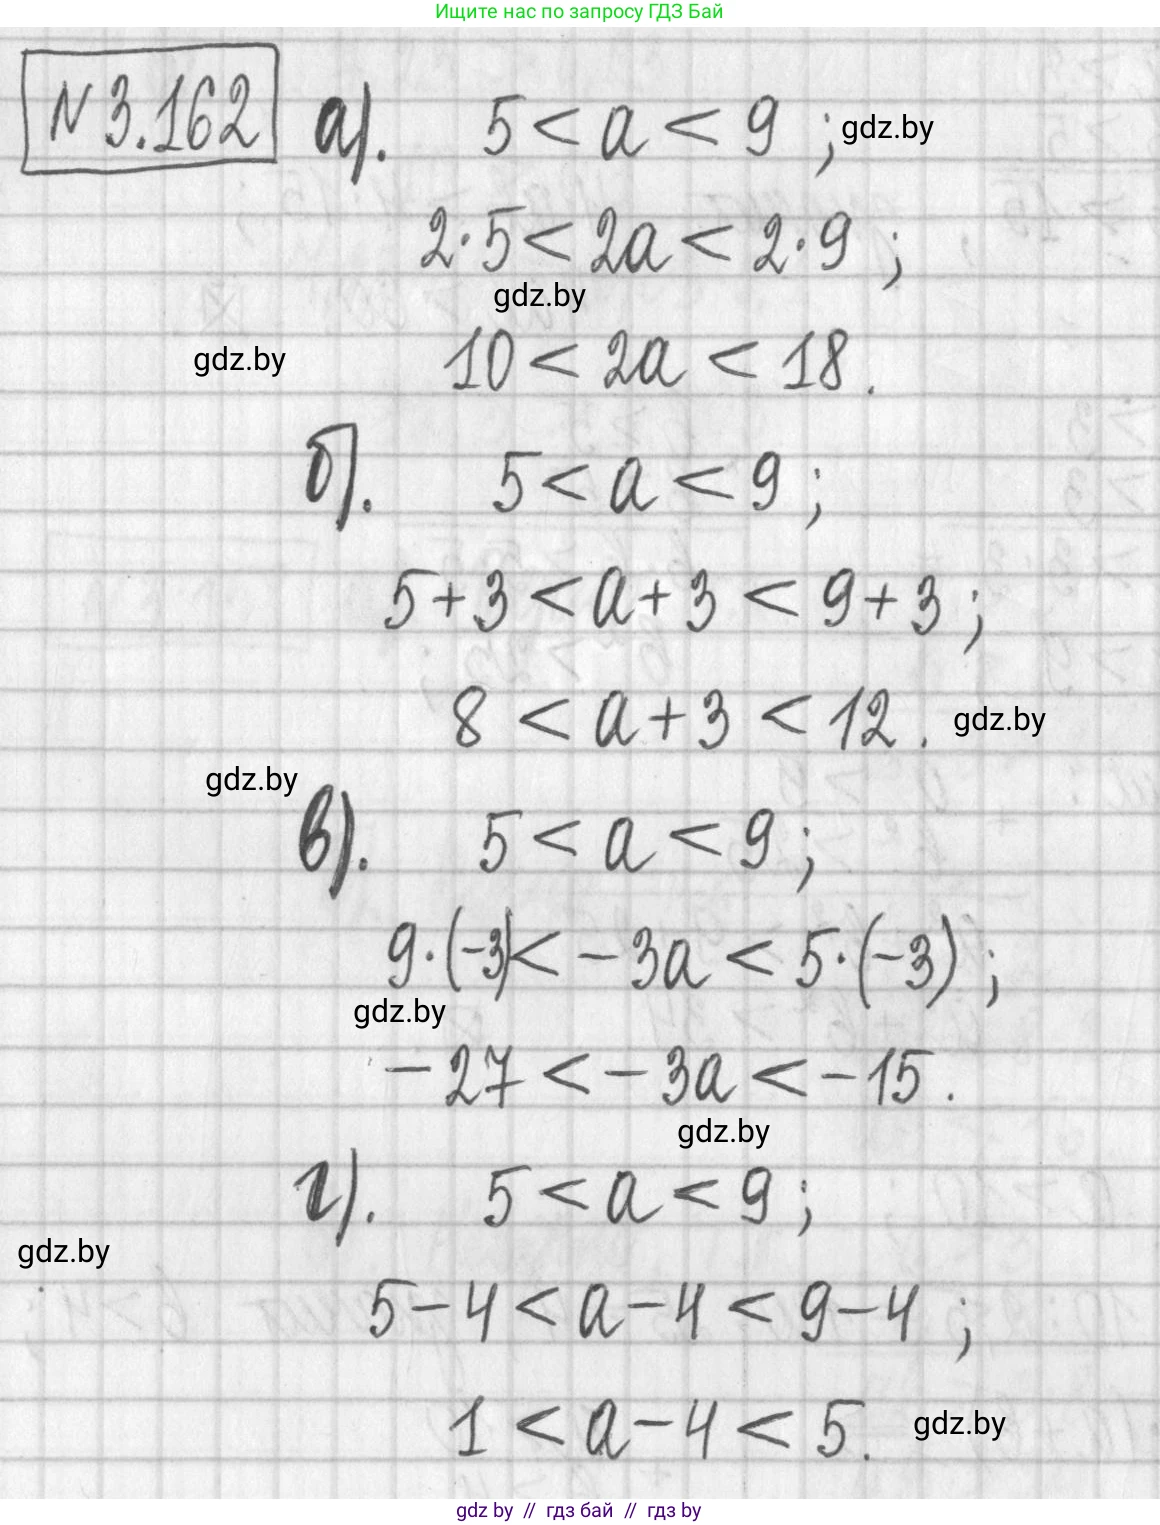 Ищите нас по запросу ГДЗ Бай
N 3.162 а). 5 < a < 9 ; gdz.by
2·5 < 2a < 2·9 ;
gdz.by
gdz.by 10 < 2a < 18.
б). 5 < a < 9 ;
5+3 < a+3 < 9+3 ;
8 < a+3 < 12. gdz.by
gdz.by
в). 5 < a < 9 ;
9·(-3) < -3a < 5·(-3) ;
gdz.by
-27 < -3a < -15.
gdz.by
г). 5 < a < 9 ;
gdz.by
5-4 < a-4 < 9-4 ;
1 < a-4 < 5. gdz.by
gdz by // гдз бай // гдз by